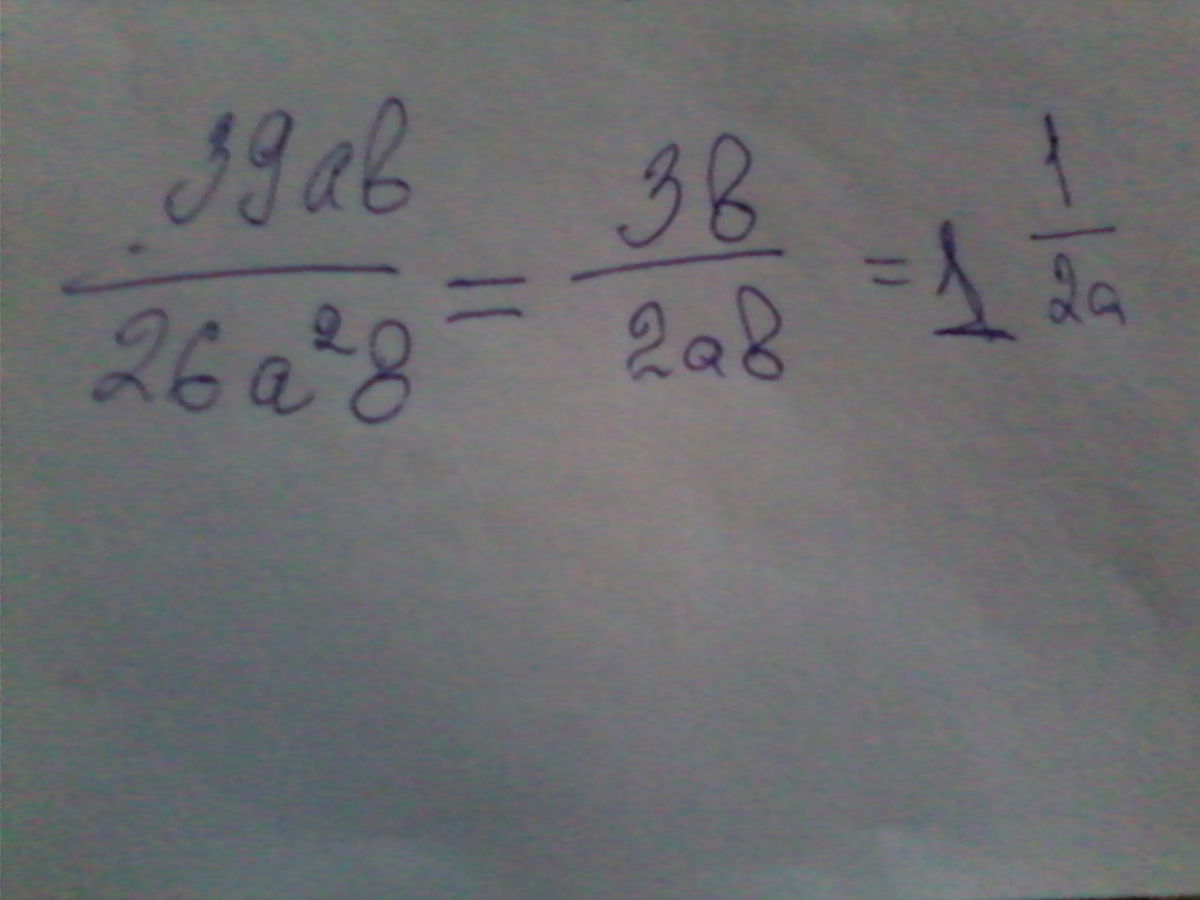 39ab/26a²b = 3b/2ab = 1 1/2a